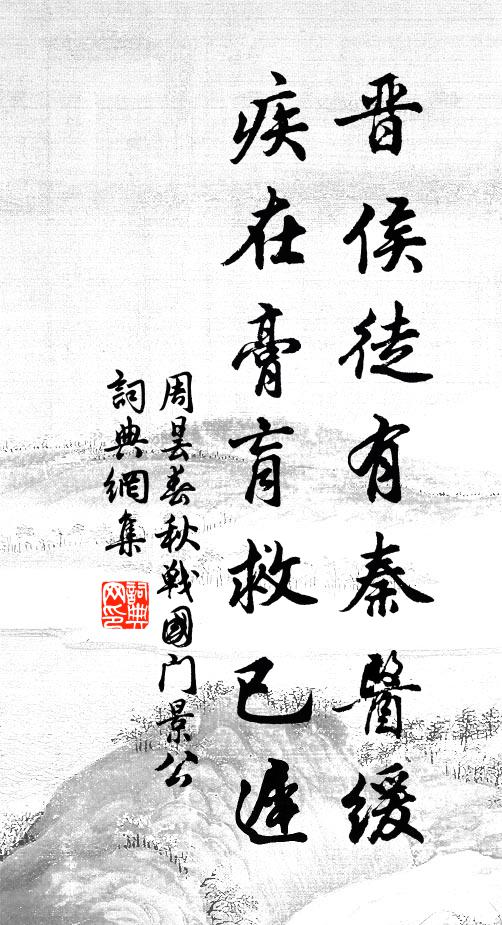 晋侯徒有秦醫緩
疾在膏肓救已遲
周曇春秋戰國门景公
詞典網集
詞典
网印